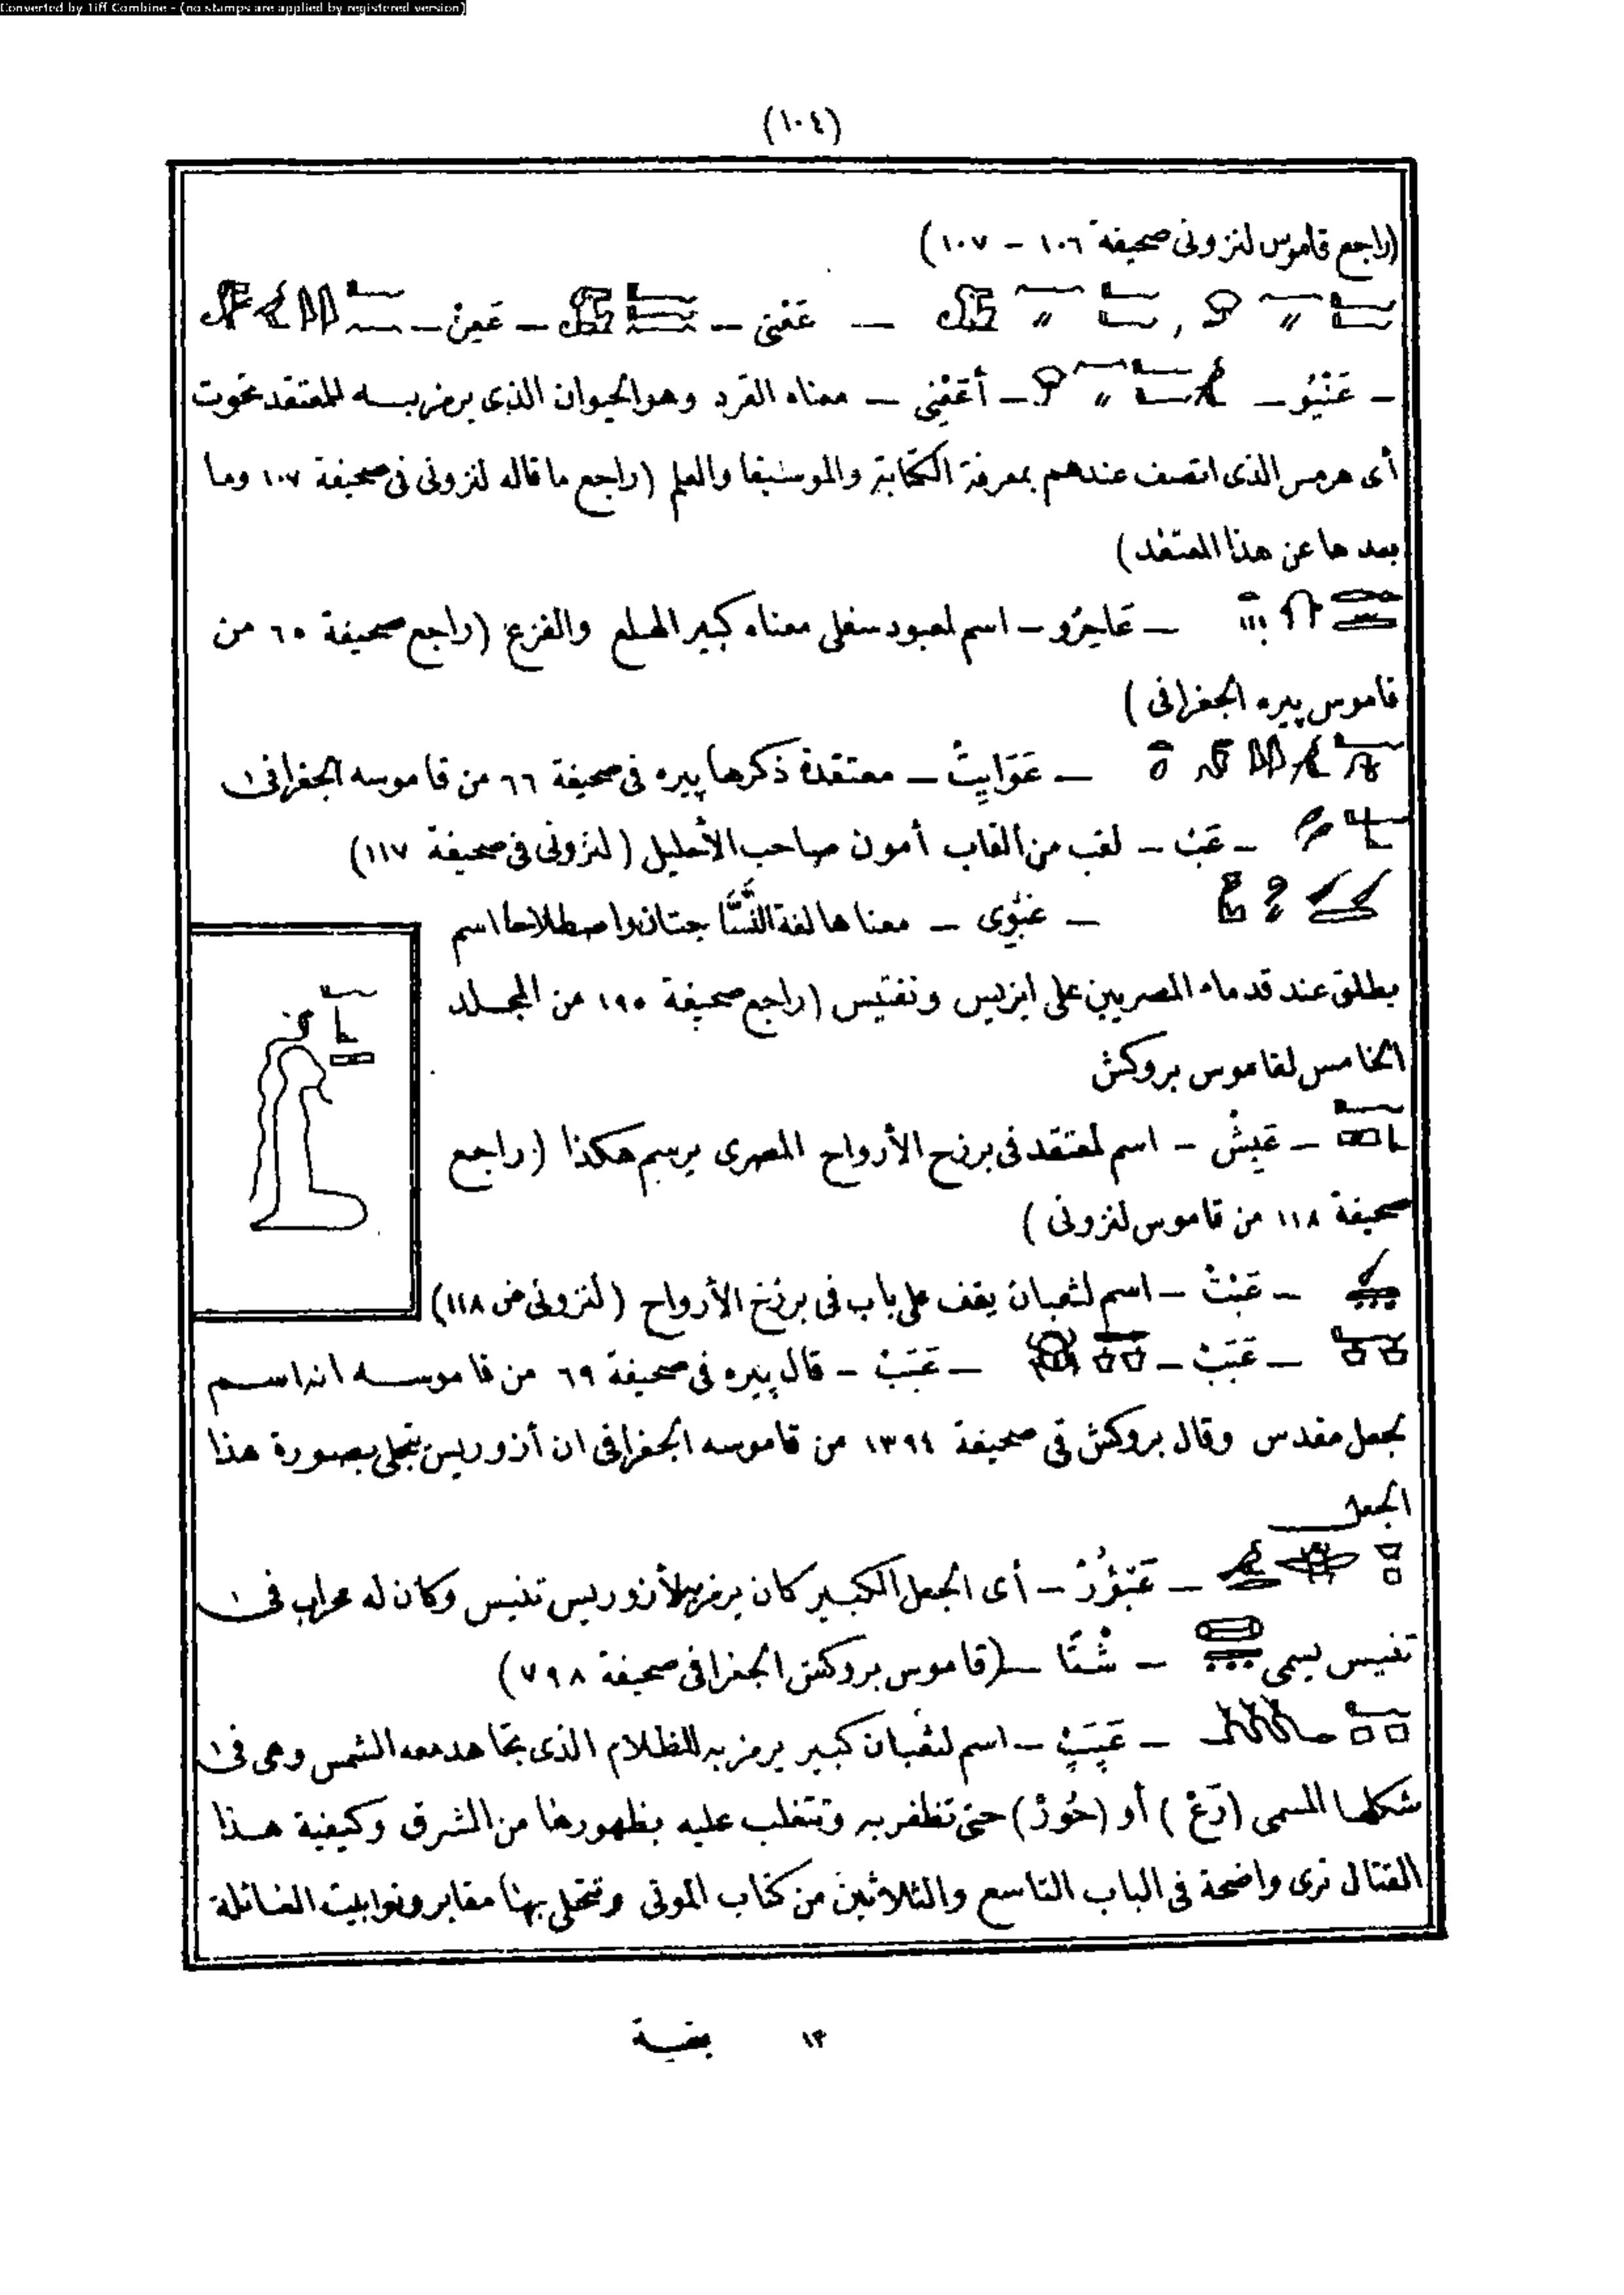 Converted by Tiff Combine - (no stamps are applied by registered version)
(١٠٤)
(راجع قاموس لنزونى صحيفة ١٠٦ - ١٠٧)
— عَفْنى — — عَفِنْ —
— عَنْيُو — — أَعَفْنِى — معناه القرد وهو الحيوان الذى يرمز به للمعتقد تحوت
أى هرمس الذى اتصف عندهم بمعرفة الكتابة والموسيقا والعلم (راجع ما قاله لنزونى فى صحيفة ١٠٧ وما
بعدها عن هذا المعتقد)
— اسم لمعبود سفلى معناه كبير الهلع والفزع (راجع صحيفة ٦٥ من
قاموس پيره الجغرافى)
— عَوَايِتْ — معتقدة ذكرها پيره فى صحيفة ٦٦ من قاموسه الجغرافى
— عَبْ — لقب من ألقاب أمون صاحب الأحليل (لنزونى فى صحيفة ١١٧)
— عَبْوِى — معناها لغة جتان واصطلاحا اسم
يطلق عند قدماء المصريين على ايزيس ونفتيس (راجع صحيفة ١٩٥ من المجلد
الخامس لقاموس بروكش
— عَبِشْ — اسم لمعتقد فى برزخ الأرواح المصرى يرسم هكذا (راجع
صحيفة ١١٨ من قاموس لنزونى)
— عَبْتْ — اسم لثعبان يقف على باب فى برزخ الأرواح (لنزونى ص ١١٨)
— عَبَبْ — — عَبَبْ — قال پيره فى صحيفة ٦٩ من قاموسه انه اسم
لجعل مقدس وقال بروكش فى صحيفة ١٣٩٤ من قاموسه الجغرافى ان أزوريس تجلى بصورة هذا
الجعل
— عَبْوُرْ — أى الجعل الكبير كان يرمز به لأزوريس تنيس وكان له محراب فى
تنيس يسمى — شْتَا — (قاموس بروكش الجغرافى صحيفة ٧٩٨)
— عَپَپْ — اسم لثعبان كبير يرمز به للظلام الذى تجاهد معه الشمس وهى فى
شكلها المسمى (رَعْ) أو (حُورْ) حتى تظفر به وتتغلب عليه بظهورها من المشرق وكيفية هذا
القتال ترى واضحة فى الباب التاسع والثلاثين من كتاب الموتى وتتحلى بها مقابر وتوابيت العائلة
١٣ بقية